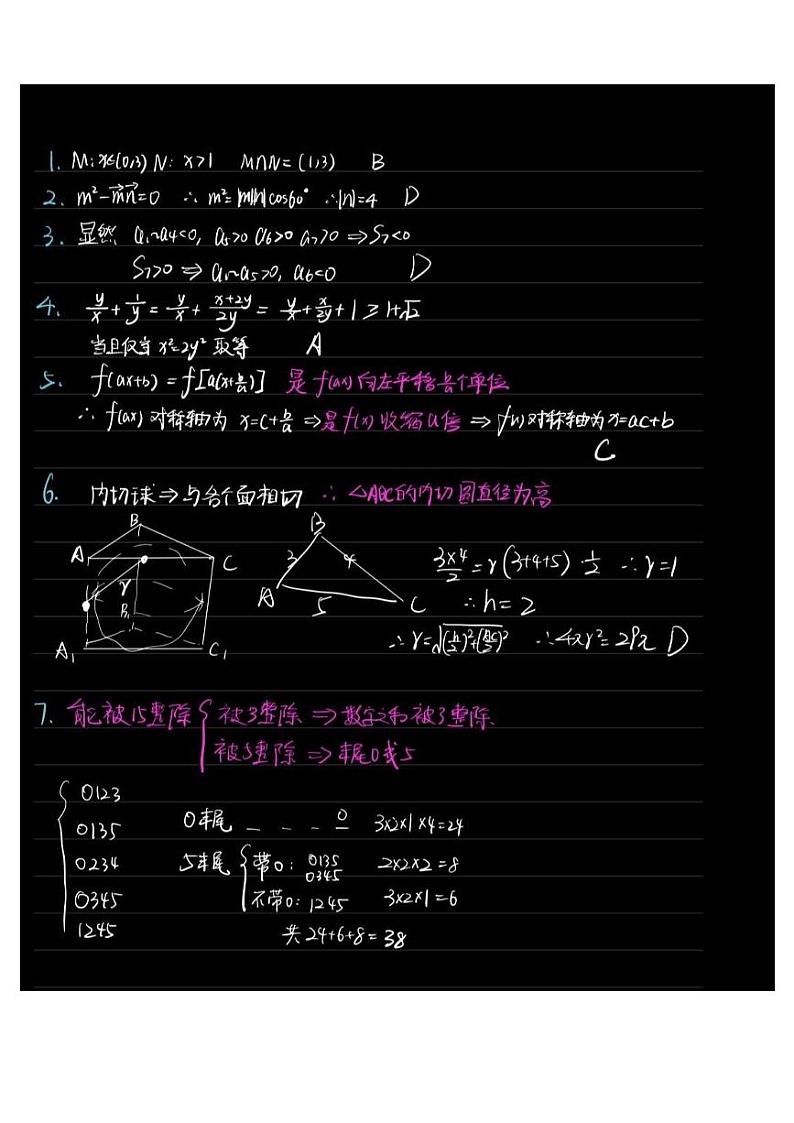 1. M: x∈(0,3) N: x>1 M∩N=(1,3) B
2. m²-m⃗n⃗=0 ∴ m²=|m||n|cos60° ∴|n|=4 D
3. 显然 a₁~a₄<0, a₅>0 a₆>0 a₇>0 ⇒S₇<0
S₇>0 ⇒ a₁~a₅>0, a₆<0 D
4. y/x + 1/y = y/x + (x+2y)/2y = y/x + x/2y + 1 ≥ 1+√2
当且仅当 x²=2y² 取等 A
5. f(ax+b) = f[a(x+b/a)] 是 f(ax) 向左平移 b/a 个单位
∴ f(ax) 对称轴为 x=c+b/a ⇒是 f(x) 收缩a倍 ⇒ f(x)对称轴为 x=ac+b
C
6. 内切球⇒与各个面相切 ∴ △ABC的内切圆直径为高
B
B
A
C
3
4
3×4/2 = r(3+4+5)·1/2 ∴r=1
r
B₁
A
5
C
∴h=2
A₁
C₁
∴r=√((h/2)²+(AC/2)²) ∴4πr²=29π D
7. 能被15整除 { 被3整除 ⇒ 数字之和被3整除
被5整除 ⇒ 末尾0或5
0123
0135 0末尾 _ _ _ 0 3×2×1×4=24
0234 5末尾 { 带0: 0135 0345 2×2×2=8
0345 不带0: 1245 3×2×1=6
1245 共 24+6+8=38